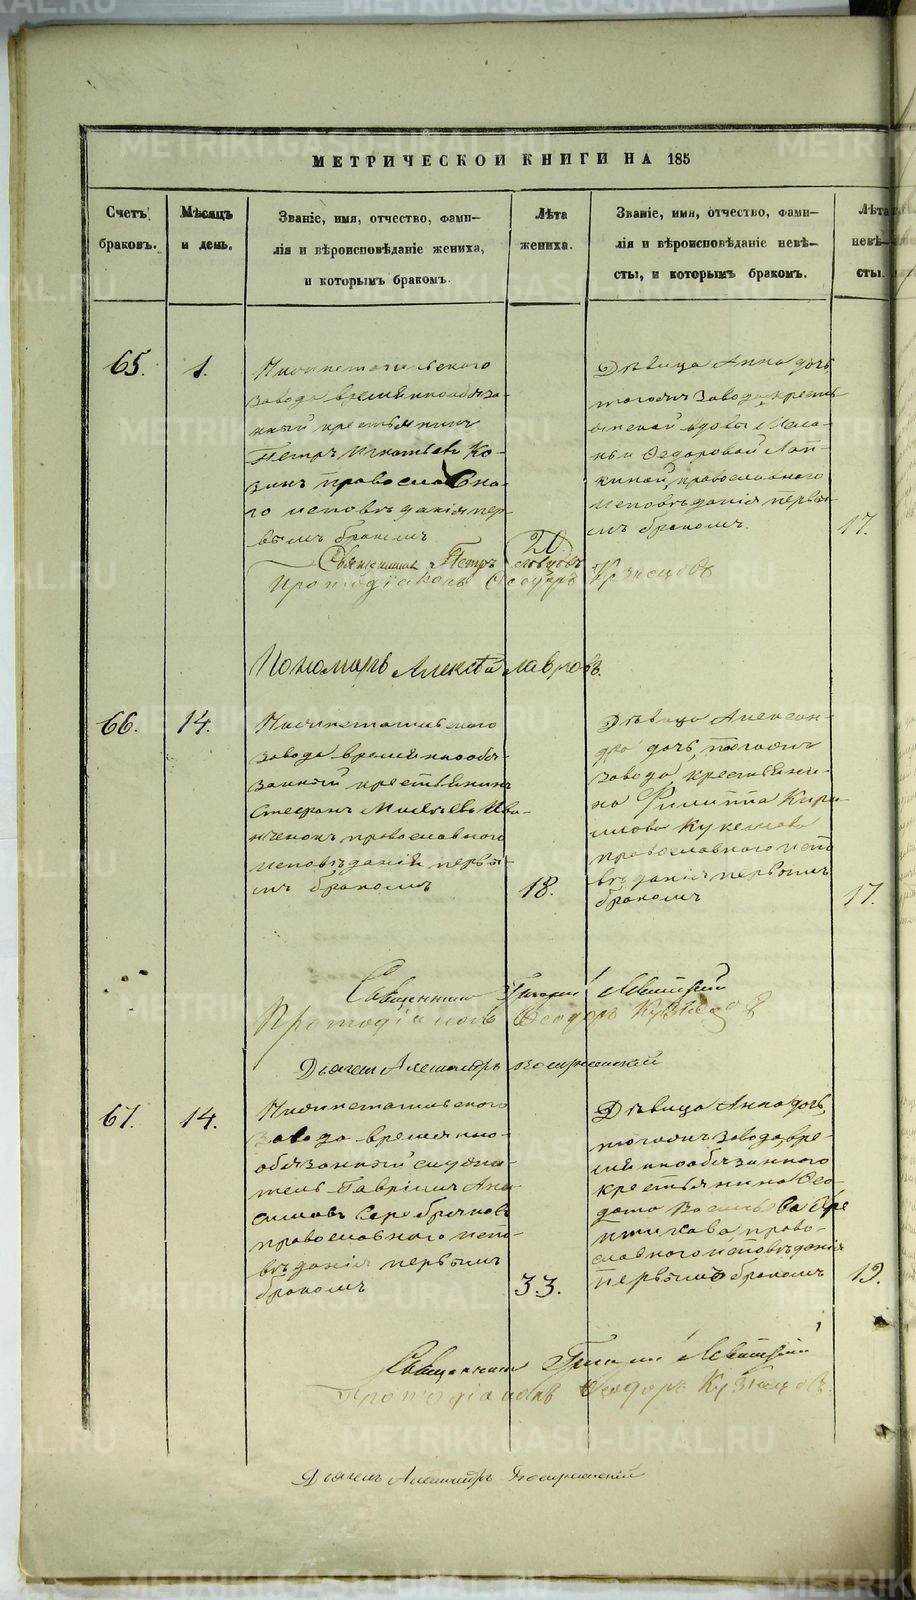 МЕТРИЧЕСКОЙ КНИГИ НА 185
Счетъ браковъ.
Мѣсяцъ и день.
Званіе, имя, отчество, фами-
лія и вѣроисповѣданіе жениха,
и которымъ бракомъ.
Лѣта жениха.
Званіе, имя, отчество, фами-
лія и вѣроисповѣданіе невѣ-
сты, и которымъ бракомъ.
Лѣта невѣ-
сты.
65.
1.
Нижнетагильского
завода временнообяза-
нный крестьянинъ
Петръ Игнатьевъ Ко-
зинъ православна-
го исповѣданія пер-
вымъ бракомъ
20
Дѣвица Анна дочь
тогожъ завода кресть-
янской вдовы Мела-
ньи Федоровой
православного
исповѣданія первы-
мъ бракомъ.
17.
Священникъ Петръ
Протодіаконъ Ѳеодоръ Кузнецовъ
Пономарь Алексѣй Лавровъ.
66.
14.
Нижнетагильского
завода временнообя-
занный крестьянинъ
Стефанъ
православного
исповѣданія первы-
мъ бракомъ
18.
Дѣвица Алексан-
дра дочь, тогожъ
завода крестьяни-
на Филиппа Кири-
лова
православного испо
вѣданія первымъ
бракомъ
17.
Священникъ Григорій Левитскій
Протодіаконъ Ѳеодоръ Кузнецовъ
Дьячекъ Александръ Воскресенский
67.
14.
Нижнетагильского
завода временно-
обязанный служи-
тель Гавріилъ
Серебряковъ
православного испо-
вѣданія первымъ
бракомъ
33.
Дѣвица Анна дочь,
тогожъ завода вре-
меннообязанного
крестьянина Ѳео-
дота Васильева
право-
славного исповѣданія
первымъ бракомъ
19.
Священникъ Григорій Левитскій
Протодіаконъ Ѳеодоръ Кузнецовъ.
Дьячекъ Александръ Воскресенский
METRIKI.GASO-URAL.RU